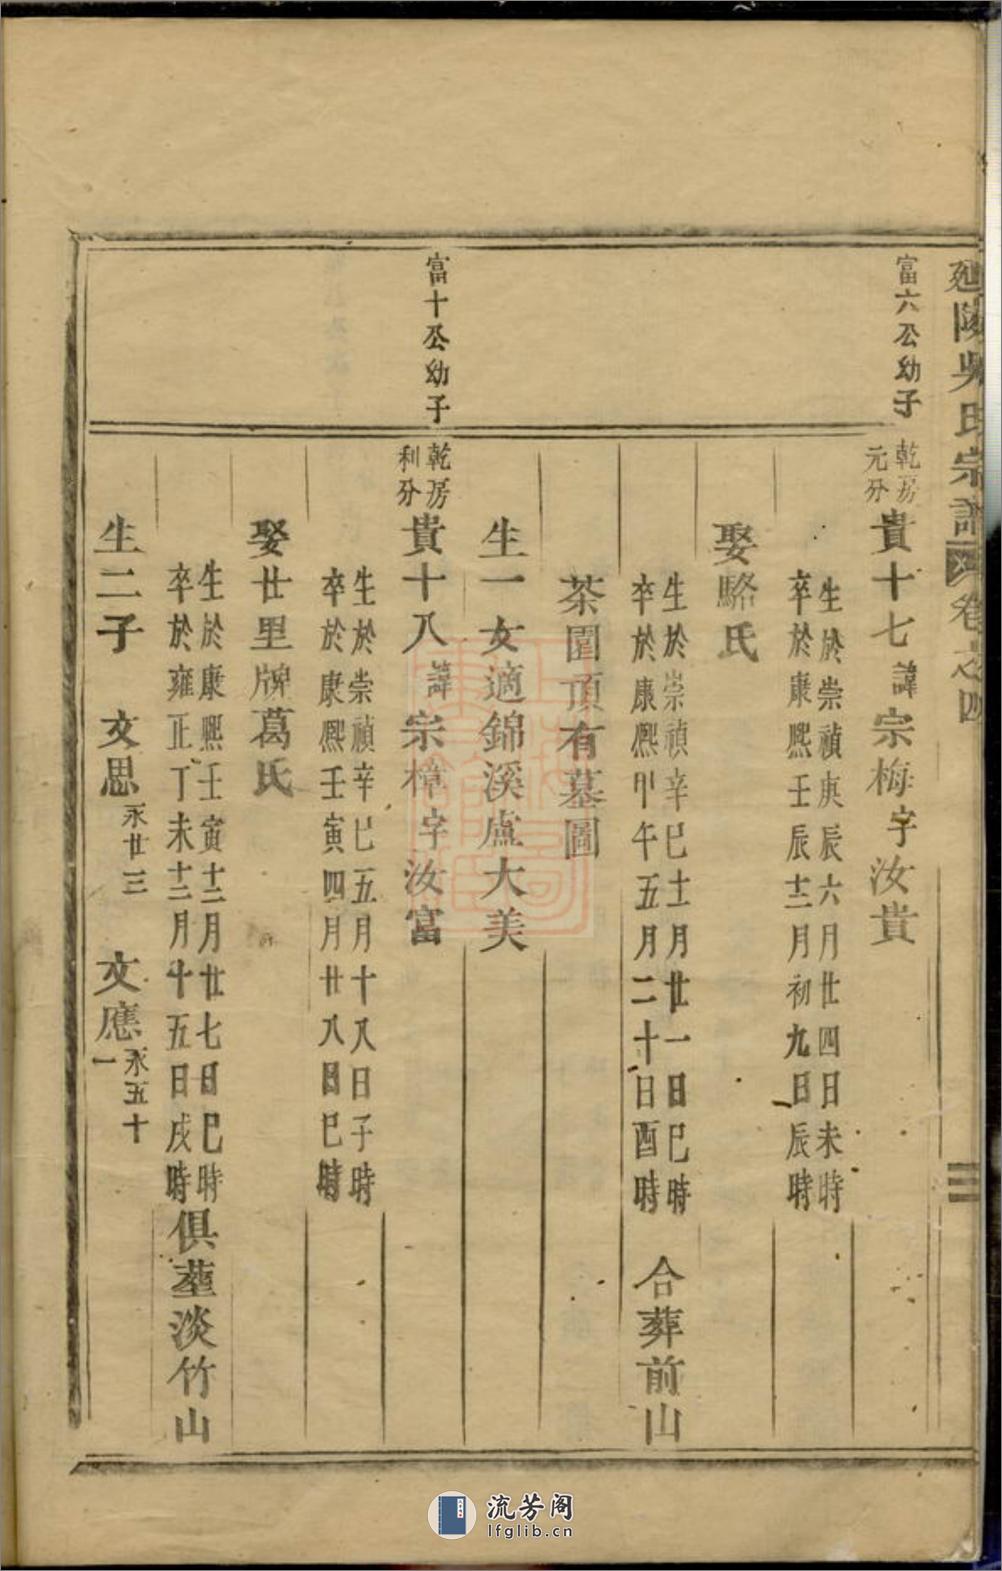 延陵吳氏宗譜 卷之四 三
富六公幼子
乾房元分貴十七諱宗梅字汝貴
生於崇禎庚辰六月廿四日未時
卒於康熙壬辰十二月初九日辰時
娶駱氏
生於崇禎辛巳十一月廿一日巳時
卒於康熙甲午五月二十日酉時
合葬前山
茶園頂有墓圖
生一女適錦溪盧大美
富十公幼子
乾房利分貴十八諱宗樟字汝富
生於崇禎辛巳五月十八日子時
卒於康熙壬寅四月廿八日巳時
娶廿里牌葛氏
生於康熙壬寅十二月廿七日巳時
卒於雍正丁未十二月十五日戌時
俱塟淡竹山
生二子 文思永廿三 文應永五十一
流芳阁
lfglib.cn